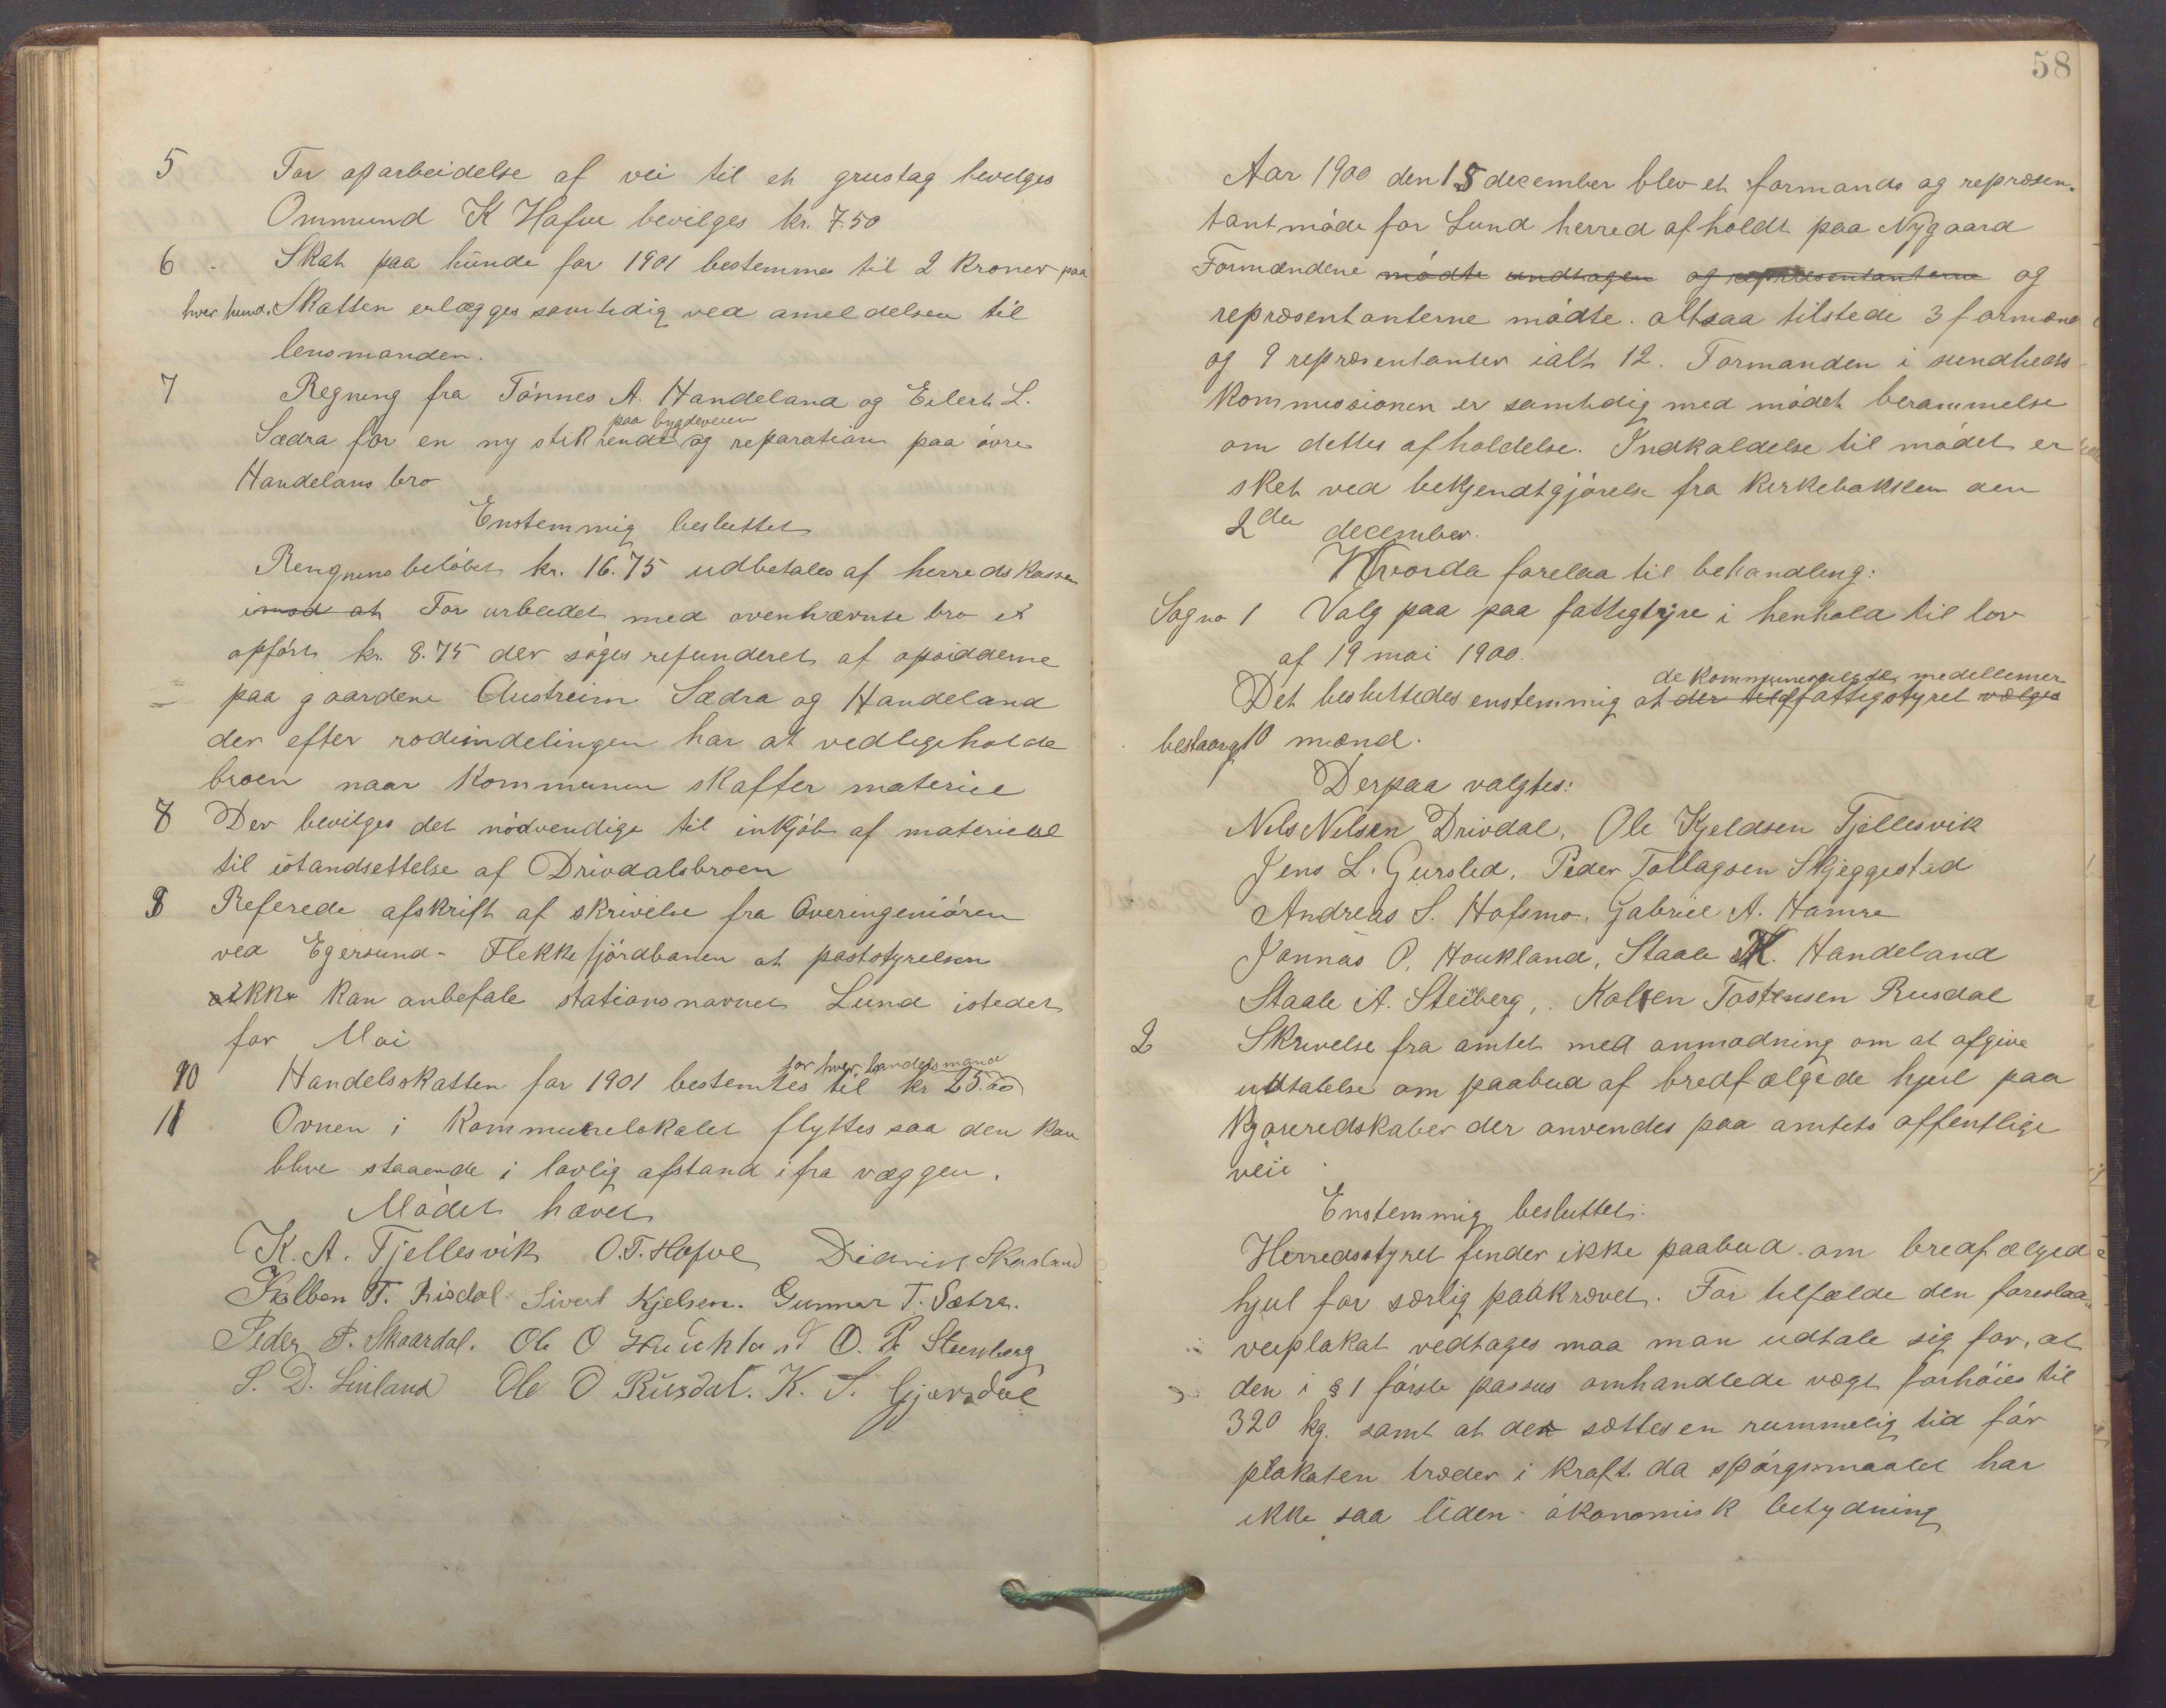 5 For oparbeidelse af vei til et grustag bevilges
Ommund K Hafve bevilges kr. 7.50
6 Skat paa hunde for 1901 bestemmes til 2 kroner paa
hver hund. Skatten erlægges samtidig ved ameldelsen til
lensmanden.
7 Regning fra Tónnes A. Handeland og Eilert L.
paa bygdeveien
Sædra for en ny stikrende og reparation paa óvre
Handelans bro
Enstemmig besluttet
Rengnens belóbet kr. 16.75 udbetales af herredskassen
imod at For arbeidet med ovenhævnte bro er
opfórt kr. 8.75 der sóges refunderet af opsidderne
paa gaardene Austreim Sædra og Handeland
der efter rodeindelingen har at vedligeholde
broen naar kommunen skaffer materiel
8 Der bevilges det nódvendige til inkjób af materiell
til istandsettelse af Drivdalsbroen
9 Referede afskrift af skrivelse fra Overingenióren
ved Egersund - Flekkefjórdbanen at poststyrelsen
ikke kan anbefale stationsnavnet Lund istedet
for Moi
for hver handelsmand
10 Handelsskatten for 1901 bestemtes til kr 25.00
11 Ovnen i kommunelokalet flyttes saa den kan
blive staaende i lovlig afstand ifra væggen.
Módet hævet
K. A. Tjellesvik O.T. Hafve Diderik Skarland
Kolben T. Risdal Sivert Kjelsen. Gunnar T. Sætra.
Peder P. Skaardal. Ole O Haukland O. P. Steenberg
S. D. Linland Ole O Rusdal. K. S. Gjersdal
58
Aar 1900 den 15 december blev et formands og repræsen-
tantmóde for Lund herred afholdt paa Nygaard
Formændene módte undtagen og repræsentanterne og
repræsentanterne módte. altsaa tilstede 3 formænd
og 9 repræsentanter ialt 12. Formanden i sundheds-
kommissionen er samtidig med módet berammelse
om dettes afholdelse. Indkaldelse til módet er
sket ved bekjendtgjórelse fra kirkebakken den
2den december.
Hvorda forelaa til behandling:
Sag no 1 Valg paa paa fattigtyre i henhold til lov
af 19 mai 1900.
de kommunevalgde medellemer
Det besluttedes enstemmig at der til fattigstyret vælges
bestaar af 10 mænd.
Derpaa valgtes:
Nels Nelsen Drivdal, Ole Kjeldsen Tjellesvik
Jens L. Gursled, Peder Tollagsen Skjeggestad
Andreas S. Hafsmo, Gabriel A. Hamre
Jonnas O, Houkland, Staale K. Handeland
Staale A. Steinberg, Kolben Tostensen Rusdal
2 Skrivelse fra amtet med anmodning om at afgive
udtalelse om paabud af bredfælgede hjul paa
kjóreredskaber der anvendes paa amtets offentlige
veie
Enstemmig besluttet:
Herredsstyret finder ikke paabud om bredfælgede
hjul for særlig paakrævet. For tilfælde den foreslaa-
veiplakat vedtages maa man udtale sig for, at
den i § 1 fórste passus omhandlede vægt forhóies til
320 kg. samt at der sættes en rummelig tid fór
plakaten træder i kraft. da spórgsmaalet har
ikke saa liden ókonomisk betydning